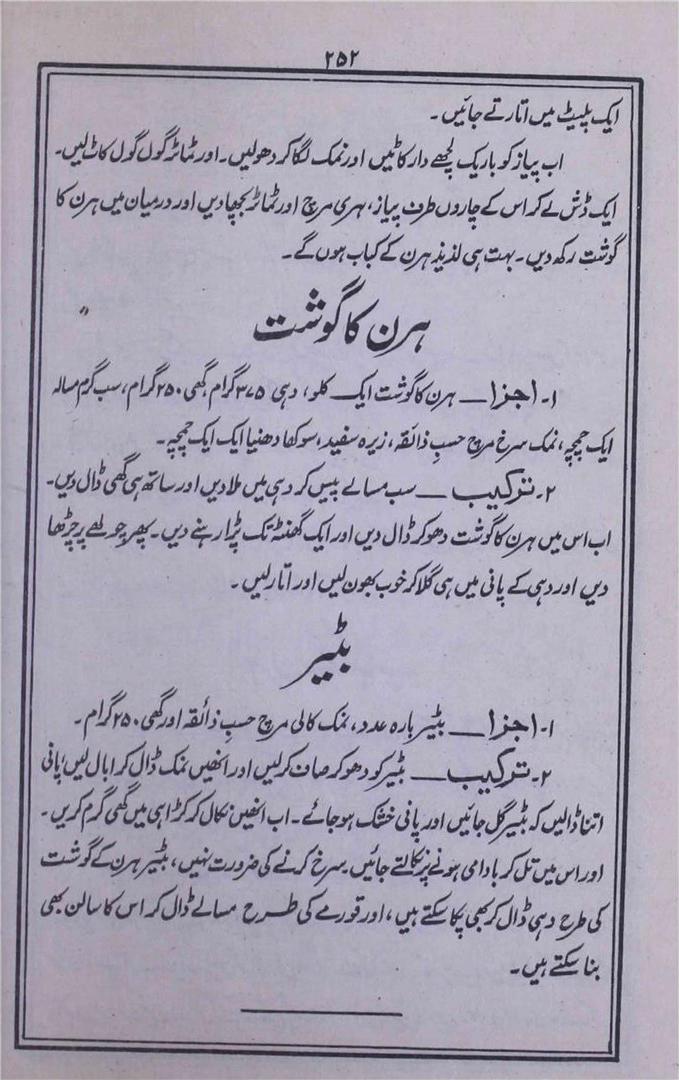 ۲۵۲
ایک پلیٹ میں اتارتے جائیں۔
اب پیاز کو باریک لچھے دار کاٹیں اور نمک لگا کر دھولیں۔ اور ٹماٹر گول گول کاٹ لیں۔
ایک ڈش لے کر اس کے چاروں طرف پیاز، ہری مرچ اور ٹماٹر بچھا دیں اور درمیان میں ہرن کا
گوشت رکھ دیں۔ بہت ہی لذیذ ہرن کے کباب ہوں گے۔
ہرن کا گوشت
۱۔ اجزا ــ ہرن کا گوشت ایک کلو، دہی ۳۷۵ گرام، گھی ۲۵۰ گرام، سب گرم مسالہ
ایک چمچہ، نمک سرخ مرچ حسبِ ذائقہ، زیرہ سفید، سوکھا دھنیا ایک ایک چمچہ۔
۲۔ ترکیب ــ سب مسالے پیس کر دہی میں ملا دیں اور ساتھ ہی گھی ڈال دیں۔
اب اس میں ہرن کا گوشت دھو کر ڈال دیں اور ایک گھنٹہ تک پڑا رہنے دیں۔ پھر چولھے پر چڑھا
دیں اور دہی کے پانی میں ہی گلا کر خوب بھون لیں اور اتار لیں۔
بٹیر
۱۔ اجزا ــ بٹیر بارہ عدد، نمک کالی مرچ حسبِ ذائقہ اور گھی ۲۵۰ گرام۔
۲۔ ترکیب ــ بٹیر کو دھو کر صاف کرلیں اور انھیں نمک ڈال کر ابال لیں، پانی
اتنا ڈالیں کہ بٹیر گل جائیں اور پانی خشک ہو جائے۔ اب انھیں نکال کر کڑاہی میں گھی گرم کریں۔
اور اس میں تل کر بادامی ہونے پر نکالتے جائیں۔ سرخ کرنے کی ضرورت نہیں، بٹیر ہرن کے گوشت
کی طرح دہی ڈال کر بھی پکا سکتے ہیں، اور قورمے کی طرح مسالے ڈال کر اس کا سالن بھی
بنا سکتے ہیں۔